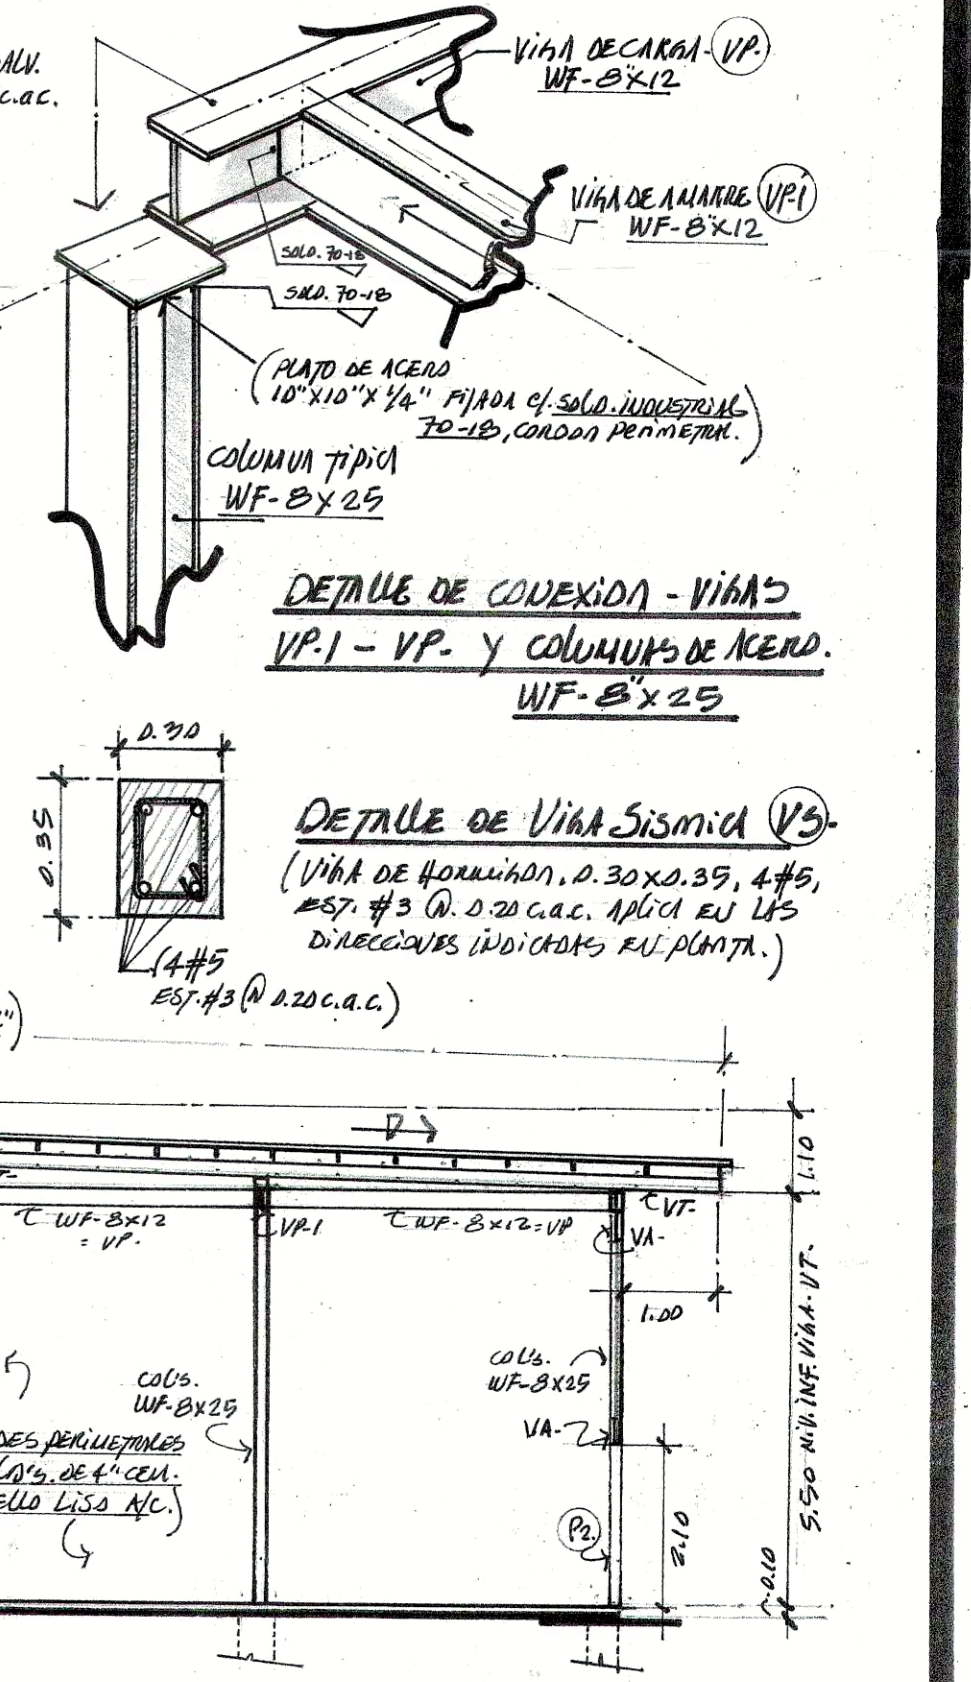 ALV.
c.a.c.
VIGA DE CARGA - VP.
WF-8"X12
VIGA DE AMARRE VP-1
WF-8"X12
SOLD. 70-18
SOLD. 70-18
(PLATO DE ACERO
10"X10"X1/4" FIJADA C/. SOLD. INDUSTRIAL
70-18, CORDON PERIMETRAL.)
COLUMNA TIPICA
WF-8X25
DETALLE DE CONEXION - VIGAS
VP.1 - VP. Y COLUMNAS DE ACERO.
WF-8"X25
0.30
0.35
DETALLE DE VIGA SISMICA VS-
(VIGA DE HORMIGON, 0.30X0.35, 4#5,
EST. #3 @. 0.20 C.a.C. APLICA EN LAS
DIRECCIONES INDICADAS EN PLANTA.)
(4#5
EST.#3 @ 0.20 C.a.C.)
")
P
1.10
WF-8X12
= VP.
VP-1
WF-8X12=VP
VT-
VA-
1.00
COL'S.
WF-8X25
COL'S.
WF-8X25
VA-
DES PERIMETRALES
DE 4" CEM.
ELLO LISO A/C.)
P2.
2.10
5.50 NIV. INF. VIGA-VT.
0.10